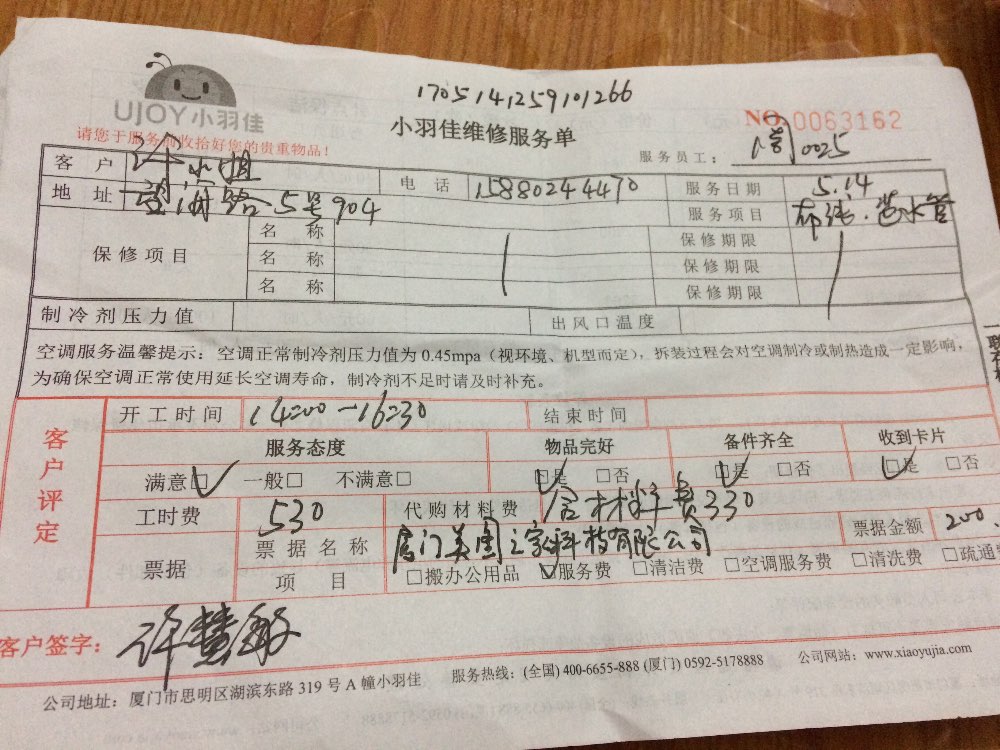 1705141259101266
UJOY小羽佳
小羽佳维修服务单
NO. 0063162
请您于服务前收拾好您的贵重物品!
服务员工: 0025
客户 许小姐 电话 15880244470 服务日期 5.14
地址 路5号904 服务项目 布线.
保修项目 名称 保修期限
名称 保修期限
名称 保修期限
制冷剂压力值 出风口温度
空调服务温馨提示:空调正常制冷剂压力值为 0.45mpa(视环境、机型而定),拆装过程会对空调制冷或制热造成一定影响,
为确保空调正常使用延长空调寿命,制冷剂不足时请及时补充。
客户评定
开工时间 14:00—16:30 结束时间
服务态度 物品完好 备件齐全 收到卡片
满意□ 一般□ 不满意□ □是 □否 □是 □否 □是 □否
工时费 530 代购材料费 含材料费330
票据 票据名称 厦门美图之家科技有限公司 票据金额 200.
项目 □搬办公用品 □服务费 □清洁费 □空调服务费 □清洗费 □疏通
客户签字: 许慧敏
公司地址:厦门市思明区湖滨东路 319 号 A 幢小羽佳 服务热线:(全国) 400-6655-888 (厦门) 0592-5178888 公司网站:www.xiaoyujia.com